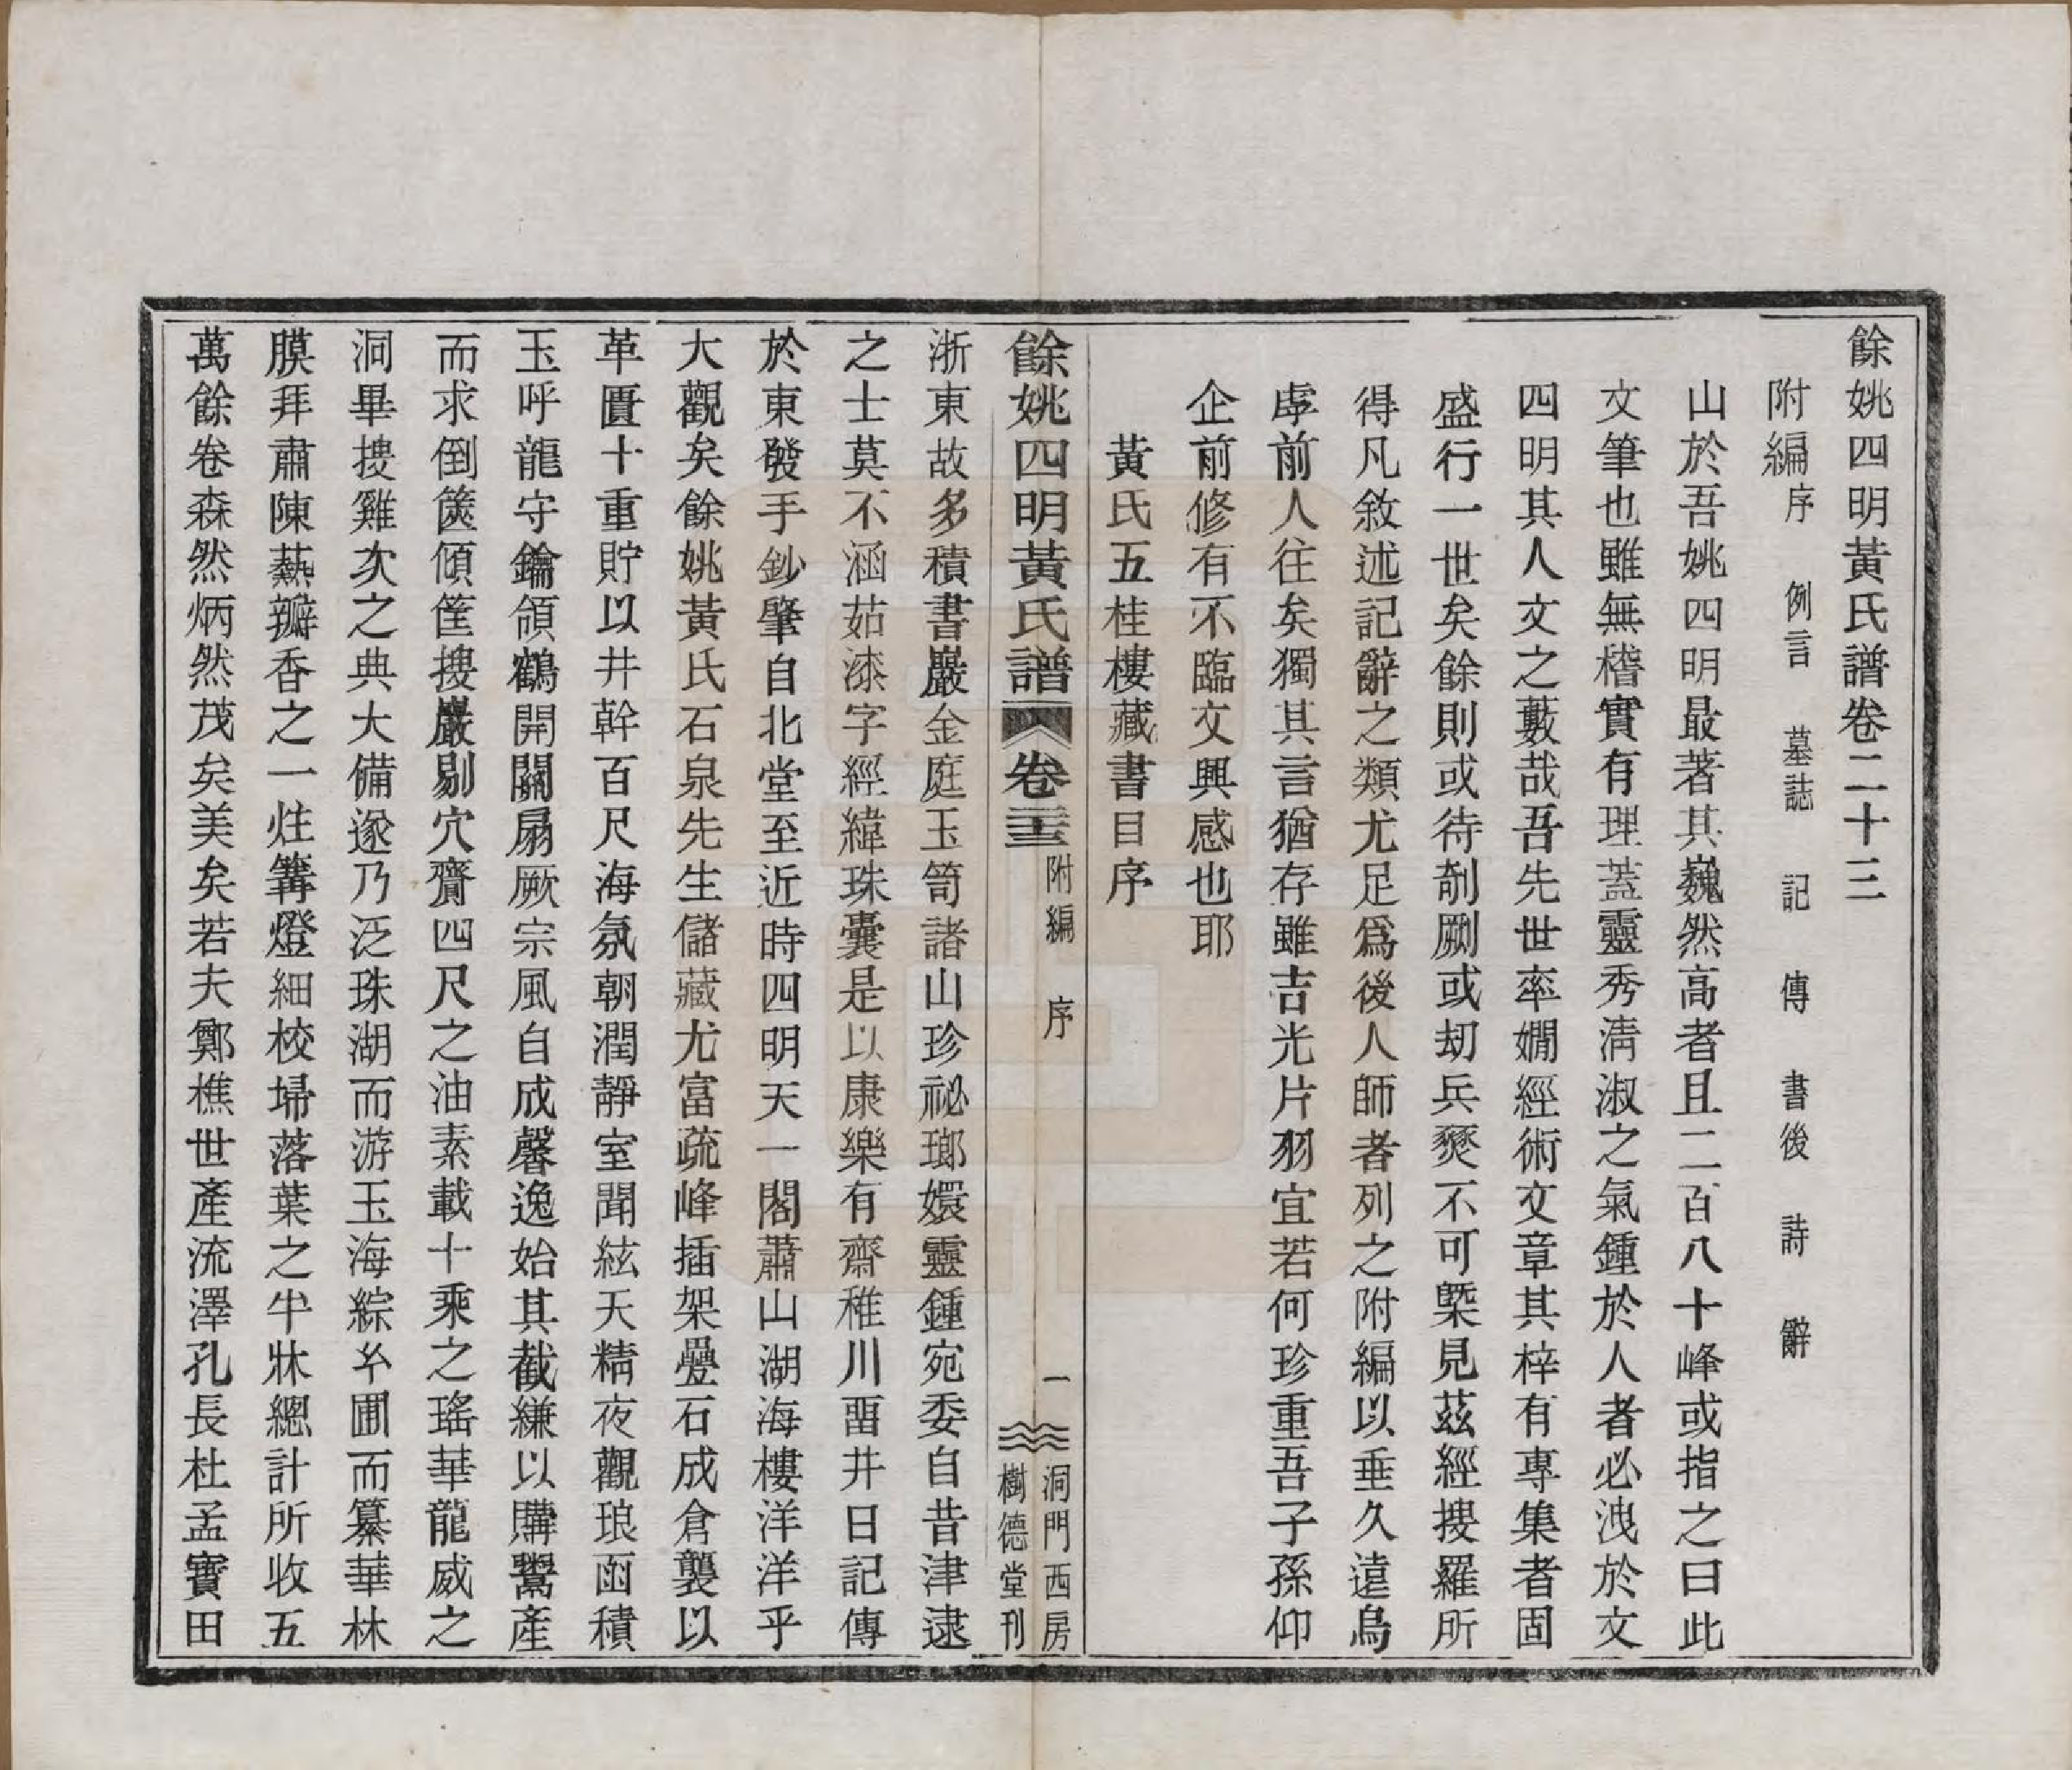 餘姚四明黃氏譜卷二十三
附編序 例言 墓誌 記 傳 書後 詩 辭
山於吾姚四明最著其巍然高者且二百八十峰或指之曰此
文筆也雖無稽實有理蓋靈秀淸淑之氣鍾於人者必洩於文
四明其人文之藪哉吾先世率嫺經術文章其梓有專集者固
盛行一世矣餘則或待剞劂或刼兵燹不可槩見茲經搜羅所
得凡敘述記辭之類尤足爲後人師者列之附編以垂久遠烏
虖前人往矣獨其言猶存雖吉光片羽宜若何珍重吾子孫仰
企前修有不臨文興感也耶
黃氏五桂樓藏書目序
餘姚四明黃氏譜 卷二十三 附編 序 一 洞門西房 樹德堂刊
浙東故多積書巖金庭玉笥諸山珍祕瑯嬛靈鍾宛委自昔津逮
之士莫不涵茹漆字經緯珠囊是以康樂有齋稚川畱井日記傳
於東發手鈔肇自北堂至近時四明天一閣蕭山湖海樓洋洋乎
大觀矣餘姚黃氏石泉先生儲藏尤富疏峰插架疊石成倉襲以
革匱十重貯以井幹百尺海氛朝潤靜室聞絃天精夜觀琅函積
玉呼龍守鑰領鶴開關扃厥宗風自成馨逸始其截縑以購鬻產
而求倒篋傾筐搜巖剔穴齎四尺之油素載十乘之瑤華龍威之
洞畢搜雞次之典大備遂乃泛珠湖而游玉海綜糸圃而纂華林
膜拜肅陳爇瓣香之一炷篝燈細校埽落葉之半牀總計所收五
萬餘卷森然炳然茂矣美矣若夫鄭樵世產流澤孔長杜孟寶田